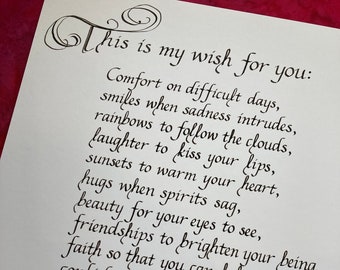 This is my wish for you:
Comfort on difficult days,
smiles when sadness intrudes,
rainbows to follow the clouds,
laughter to kiss your lips,
sunsets to warm your heart,
hugs when spirits sag,
beauty for your eyes to see,
friendships to brighten your being,
faith so that you can